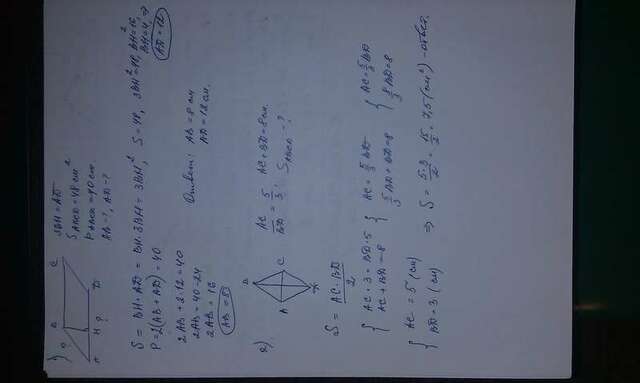 1)
B C
A H D
3BH = AD
S ABCD = 48 см²
P ABCD = 40 см
AB - ?, AD - ?
S = BH · AD = BH · 3BH = 3BH², S = 48, 3BH² = 48, BH² = 16,
BH = 4, ⇒
AD = 12
P = 2(AB + AD) = 40
2AB + 2·12 = 40
2AB = 40 - 24
2AB = 16
AB = 8
Ответ: AB = 8 см
AD = 12 см.
2)
B
A C
D
AC/BD = 5/3; AC + BD = 8 см.
S ABCD - ?
S = AC · BD / 2
{ AC · 3 = BD · 5 { AC = 5/3 BD { AC = 5/3 BD
AC + BD = 8 5/3 BD + BD = 8 8/3 BD = 8
{ AC = 5 (см)
BD = 3 (см) ⇒ S = 5·3/2 = 15/2 = 7,5 (см²) - ответ.